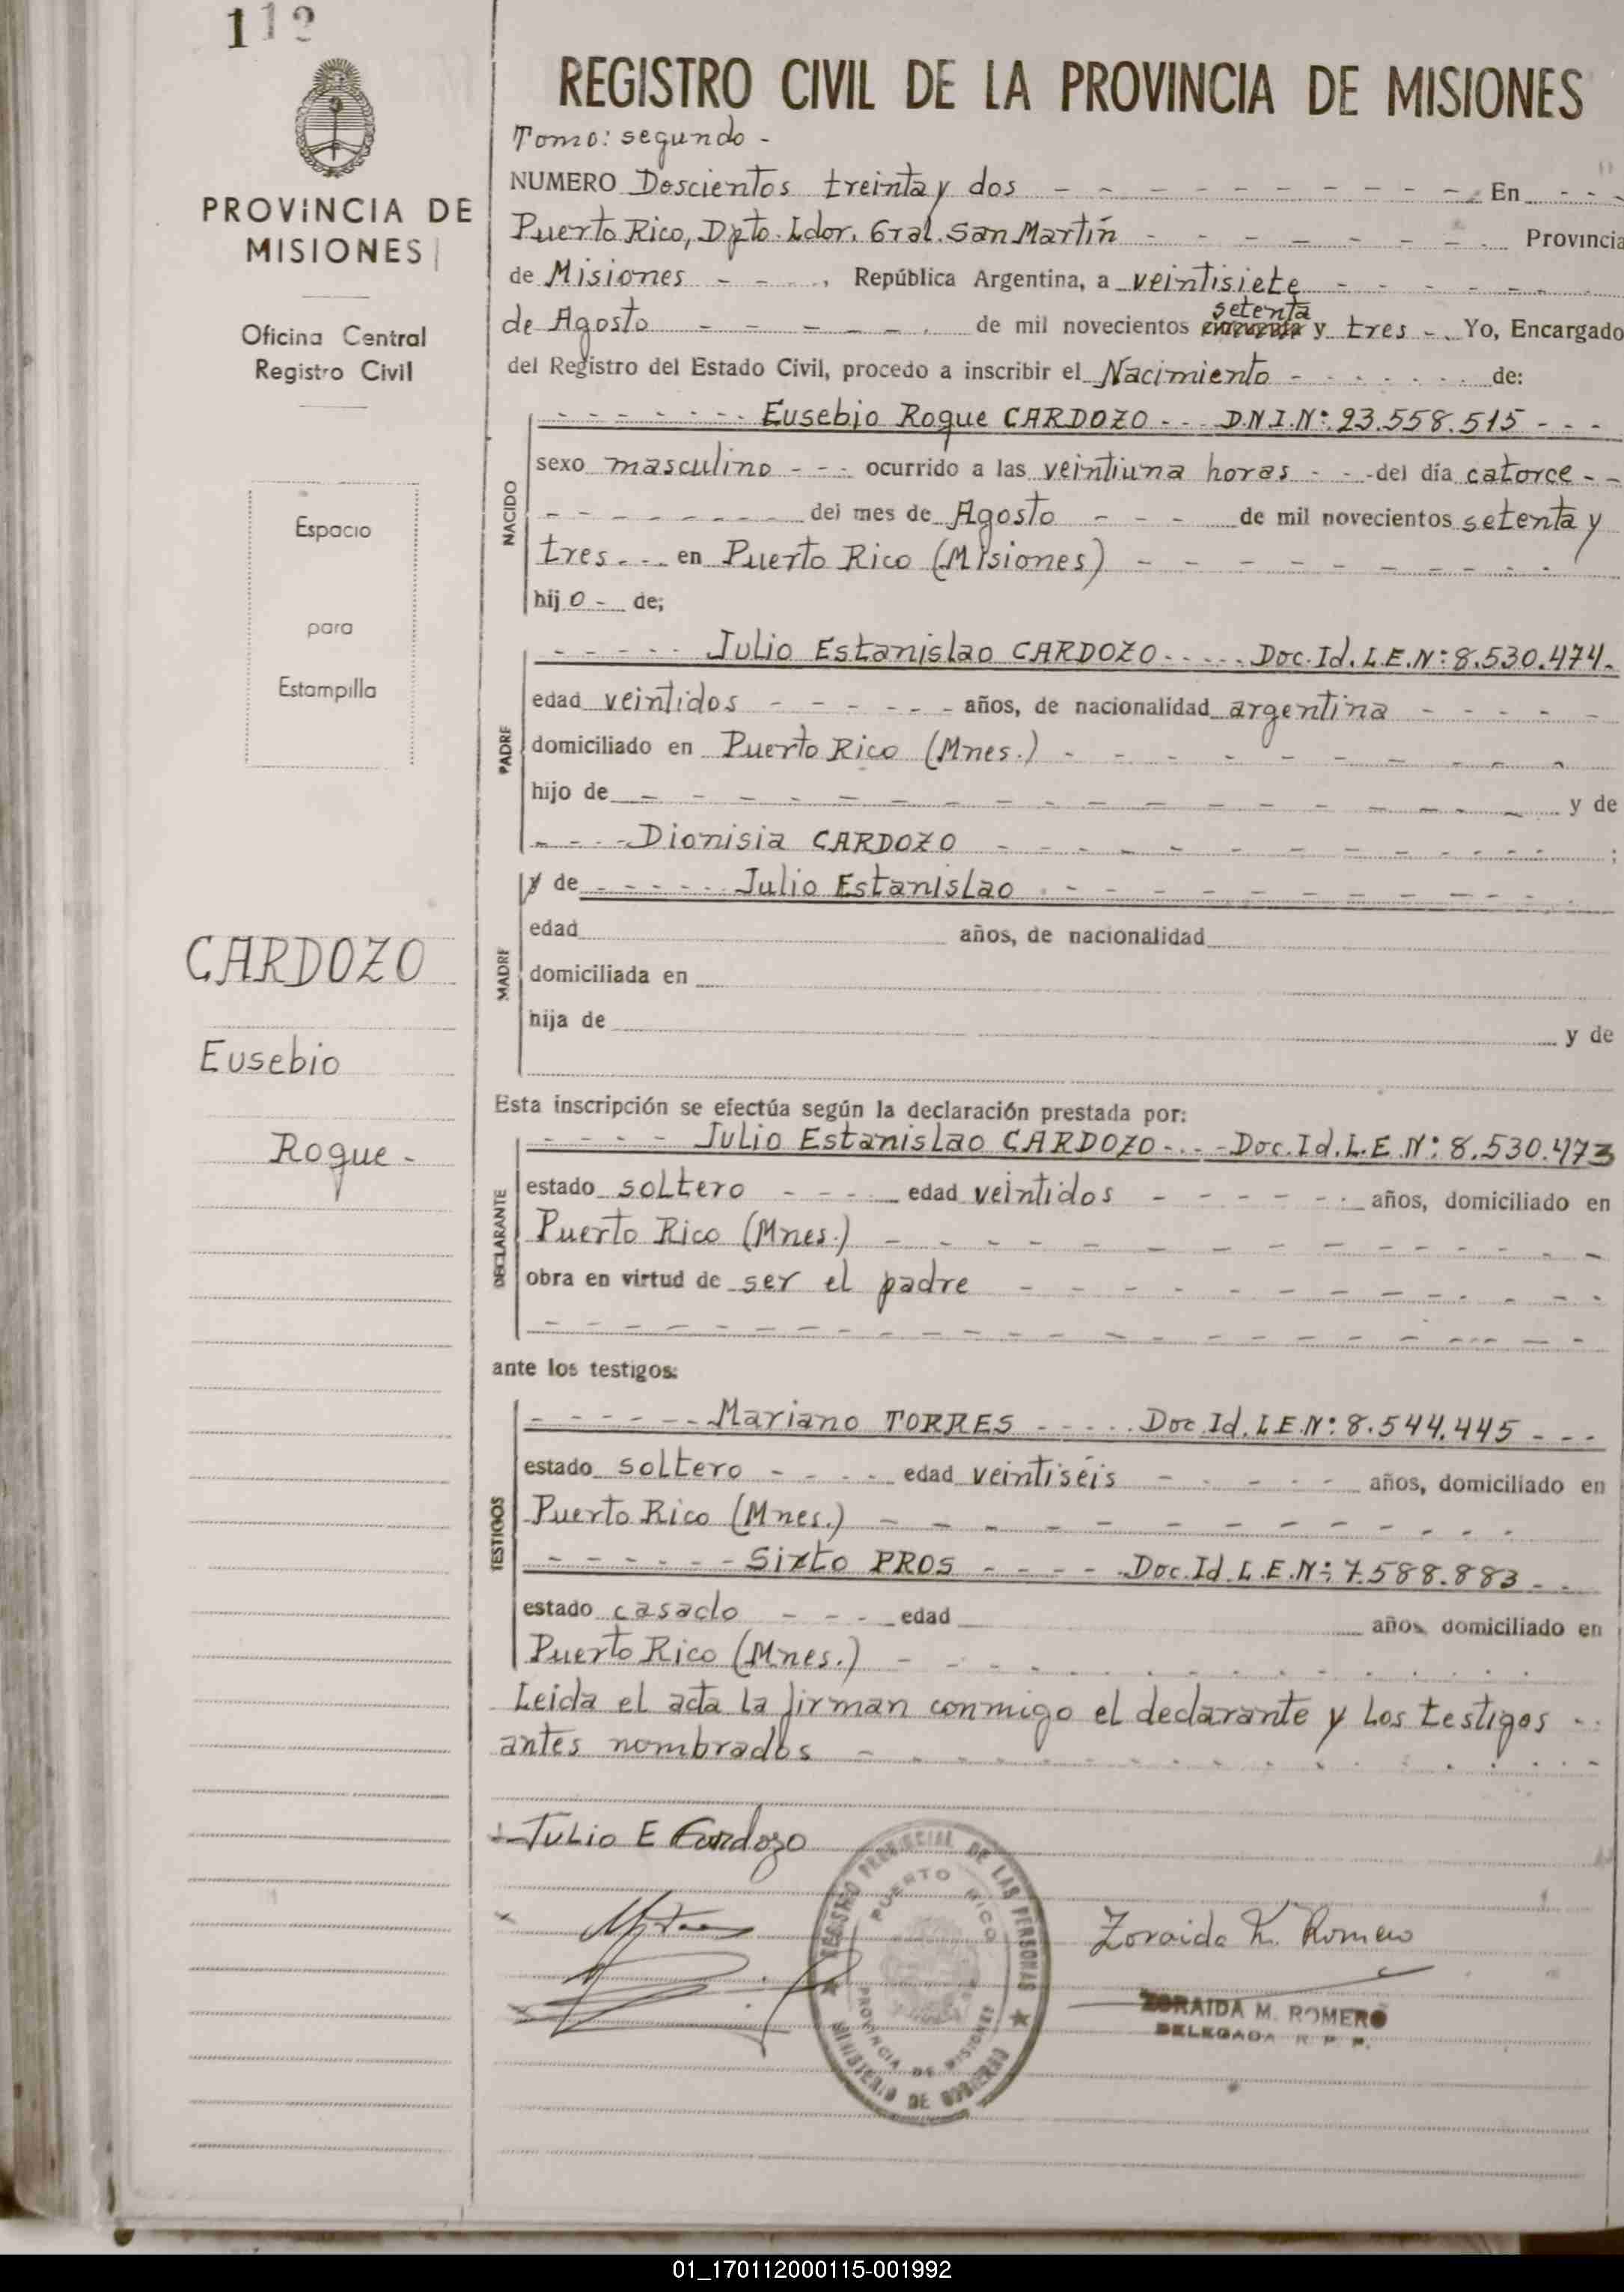 112
PROVINCIA DE
MISIONES
Oficina Central
Registro Civil
Espacio
para
Estampilla
CARDOZO
Eusebio
Roque -
REGISTRO CIVIL DE LA PROVINCIA DE MISIONES
Tomo: segundo -
NUMERO Doscientos treinta y dos - - - - - - - - - - En - -
Puerto Rico, Dpto. Ldor. Gral. San Martín - - - - - - - - Provincia
de Misiones - - - , República Argentina, a veintisiete - - - - - -
de Agosto - - - - - - de mil novecientos setenta y tres - . Yo, Encargado
del Registro del Estado Civil, procedo a inscribir el Nacimiento - - - - - - de:
NACIDO
- - - - - - - Eusebio Roque CARDOZO - - - D.N.I.N°: 23.558.515 - - -
sexo masculino - - - ocurrido a las veintiuna horas - - - del día catorce - -
- - - - - - - - del mes de Agosto - - - - de mil novecientos setenta y
tres - - - en Puerto Rico (Misiones) - - - - - - - - -
hij o - de;
PADRE
- - - - - Julio Estanislao CARDOZO - - - - - Doc. Id. L.E.N°: 8.530.474.
edad veintidos - - - - - - años, de nacionalidad argentina - - - - -
domiciliado en Puerto Rico (Mnes.) - - - - - - - - - -
hijo de - - - - - - - - - - - - - - - - y de
- - - - Dionisia CARDOZO - - - - - - - - - - - - ;
MADRE
y de - - - - - Julio Estanislao - - - - - - - - - - -
edad años, de nacionalidad
domiciliada en
hija de y de
Esta inscripción se efectúa según la declaración prestada por:
DECLARANTE
- - - - Julio Estanislao CARDOZO - - - - Doc. Id. L.E.N°: 8.530.473
estado soltero - - - - edad veintidos - - - - - - años, domiciliado en
Puerto Rico (Mnes.) - - - - - - - - - - - - - -
obra en virtud de ser el padre - - - - - - - - - - - -
- - - - - - - - - - - - - - - - - - - - - -
ante los testigos:
TESTIGOS
- - - - - - Mariano TORRES - - - - - Doc. Id. L.E.N°: 8.544.445 - - -
estado soltero - - - - edad veintiséis - - - - - - años, domiciliado en
Puerto Rico (Mnes.) - - - - - - - - - - - - -
- - - - - - Sixto PROS - - - - - Doc. Id. L.E.N°: 7.588.883 - -
estado casado - - - edad años domiciliado en
Puerto Rico (Mnes.) - - - - - - - - - - - - -
Leida el acta la firman conmigo el declarante y los testigos - -
antes nombrados - - - - - - - - - - - - - -
Julio E Cardozo
REGISTRO PROVINCIAL DE LAS PERSONAS
PUERTO RICO
PROVINCIA DE MISIONES
MINISTERIO DE GOBIERNO
Zoraida M. Romero
ZORAIDA M. ROMERO
DELEGADA R. P. P.
01_170112000115-001992